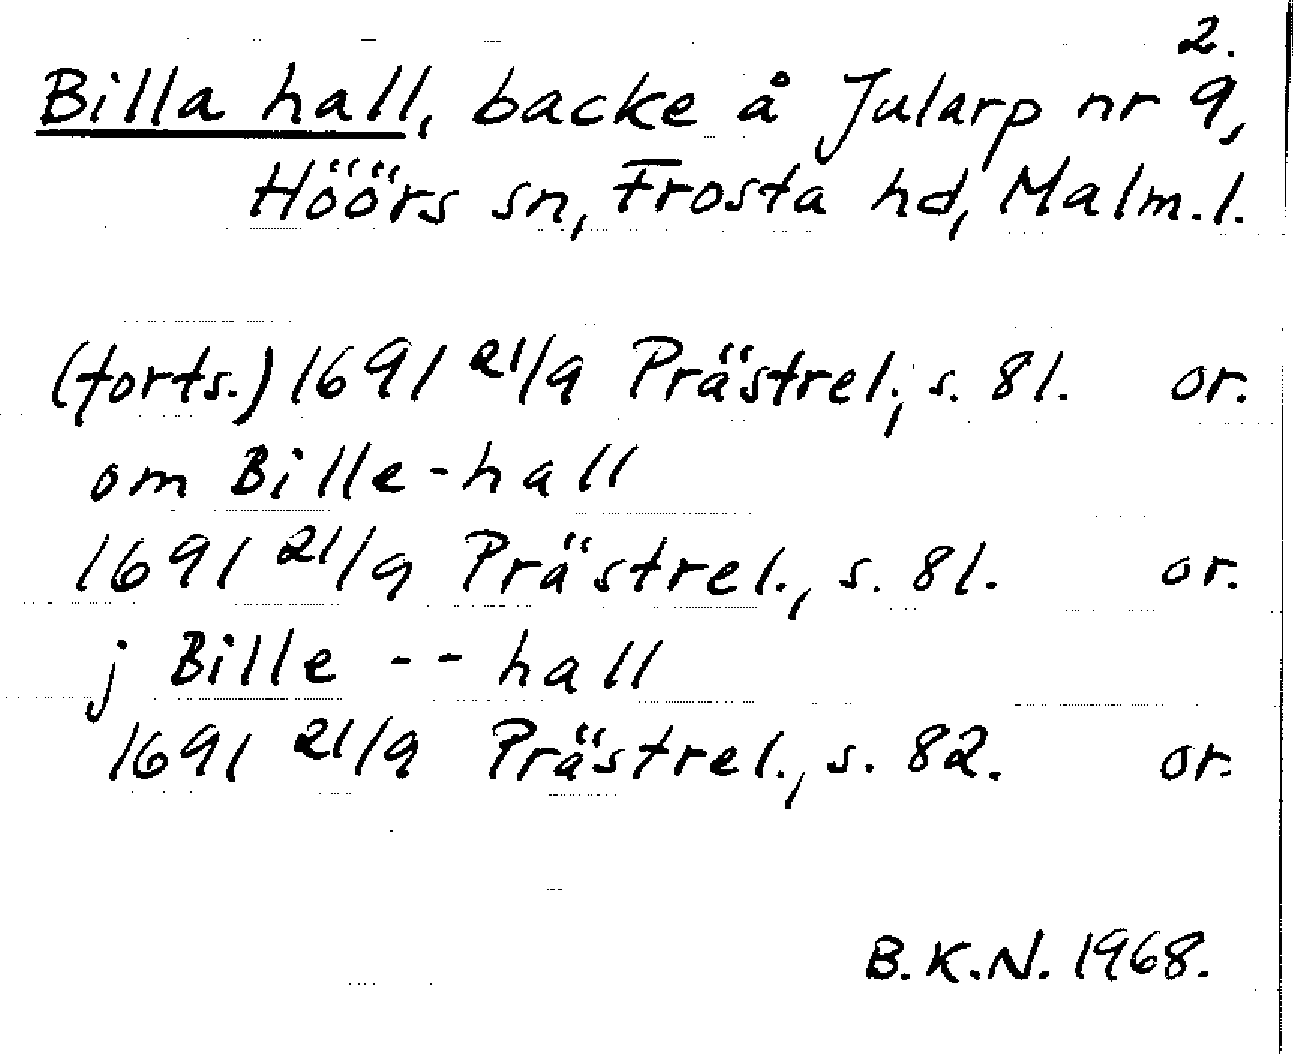 2.
Billa hall, backe å Jularp nr 9,
Höörs sn, Frosta hd, Malm.l.
(forts.) 1691 21/9 Prästrel., s. 81. or.
om Bille-hall
1691 21/9 Prästrel., s. 81. or.
j Bille -- hall
1691 21/9 Prästrel., s. 82. or.
B.K.N. 1968.